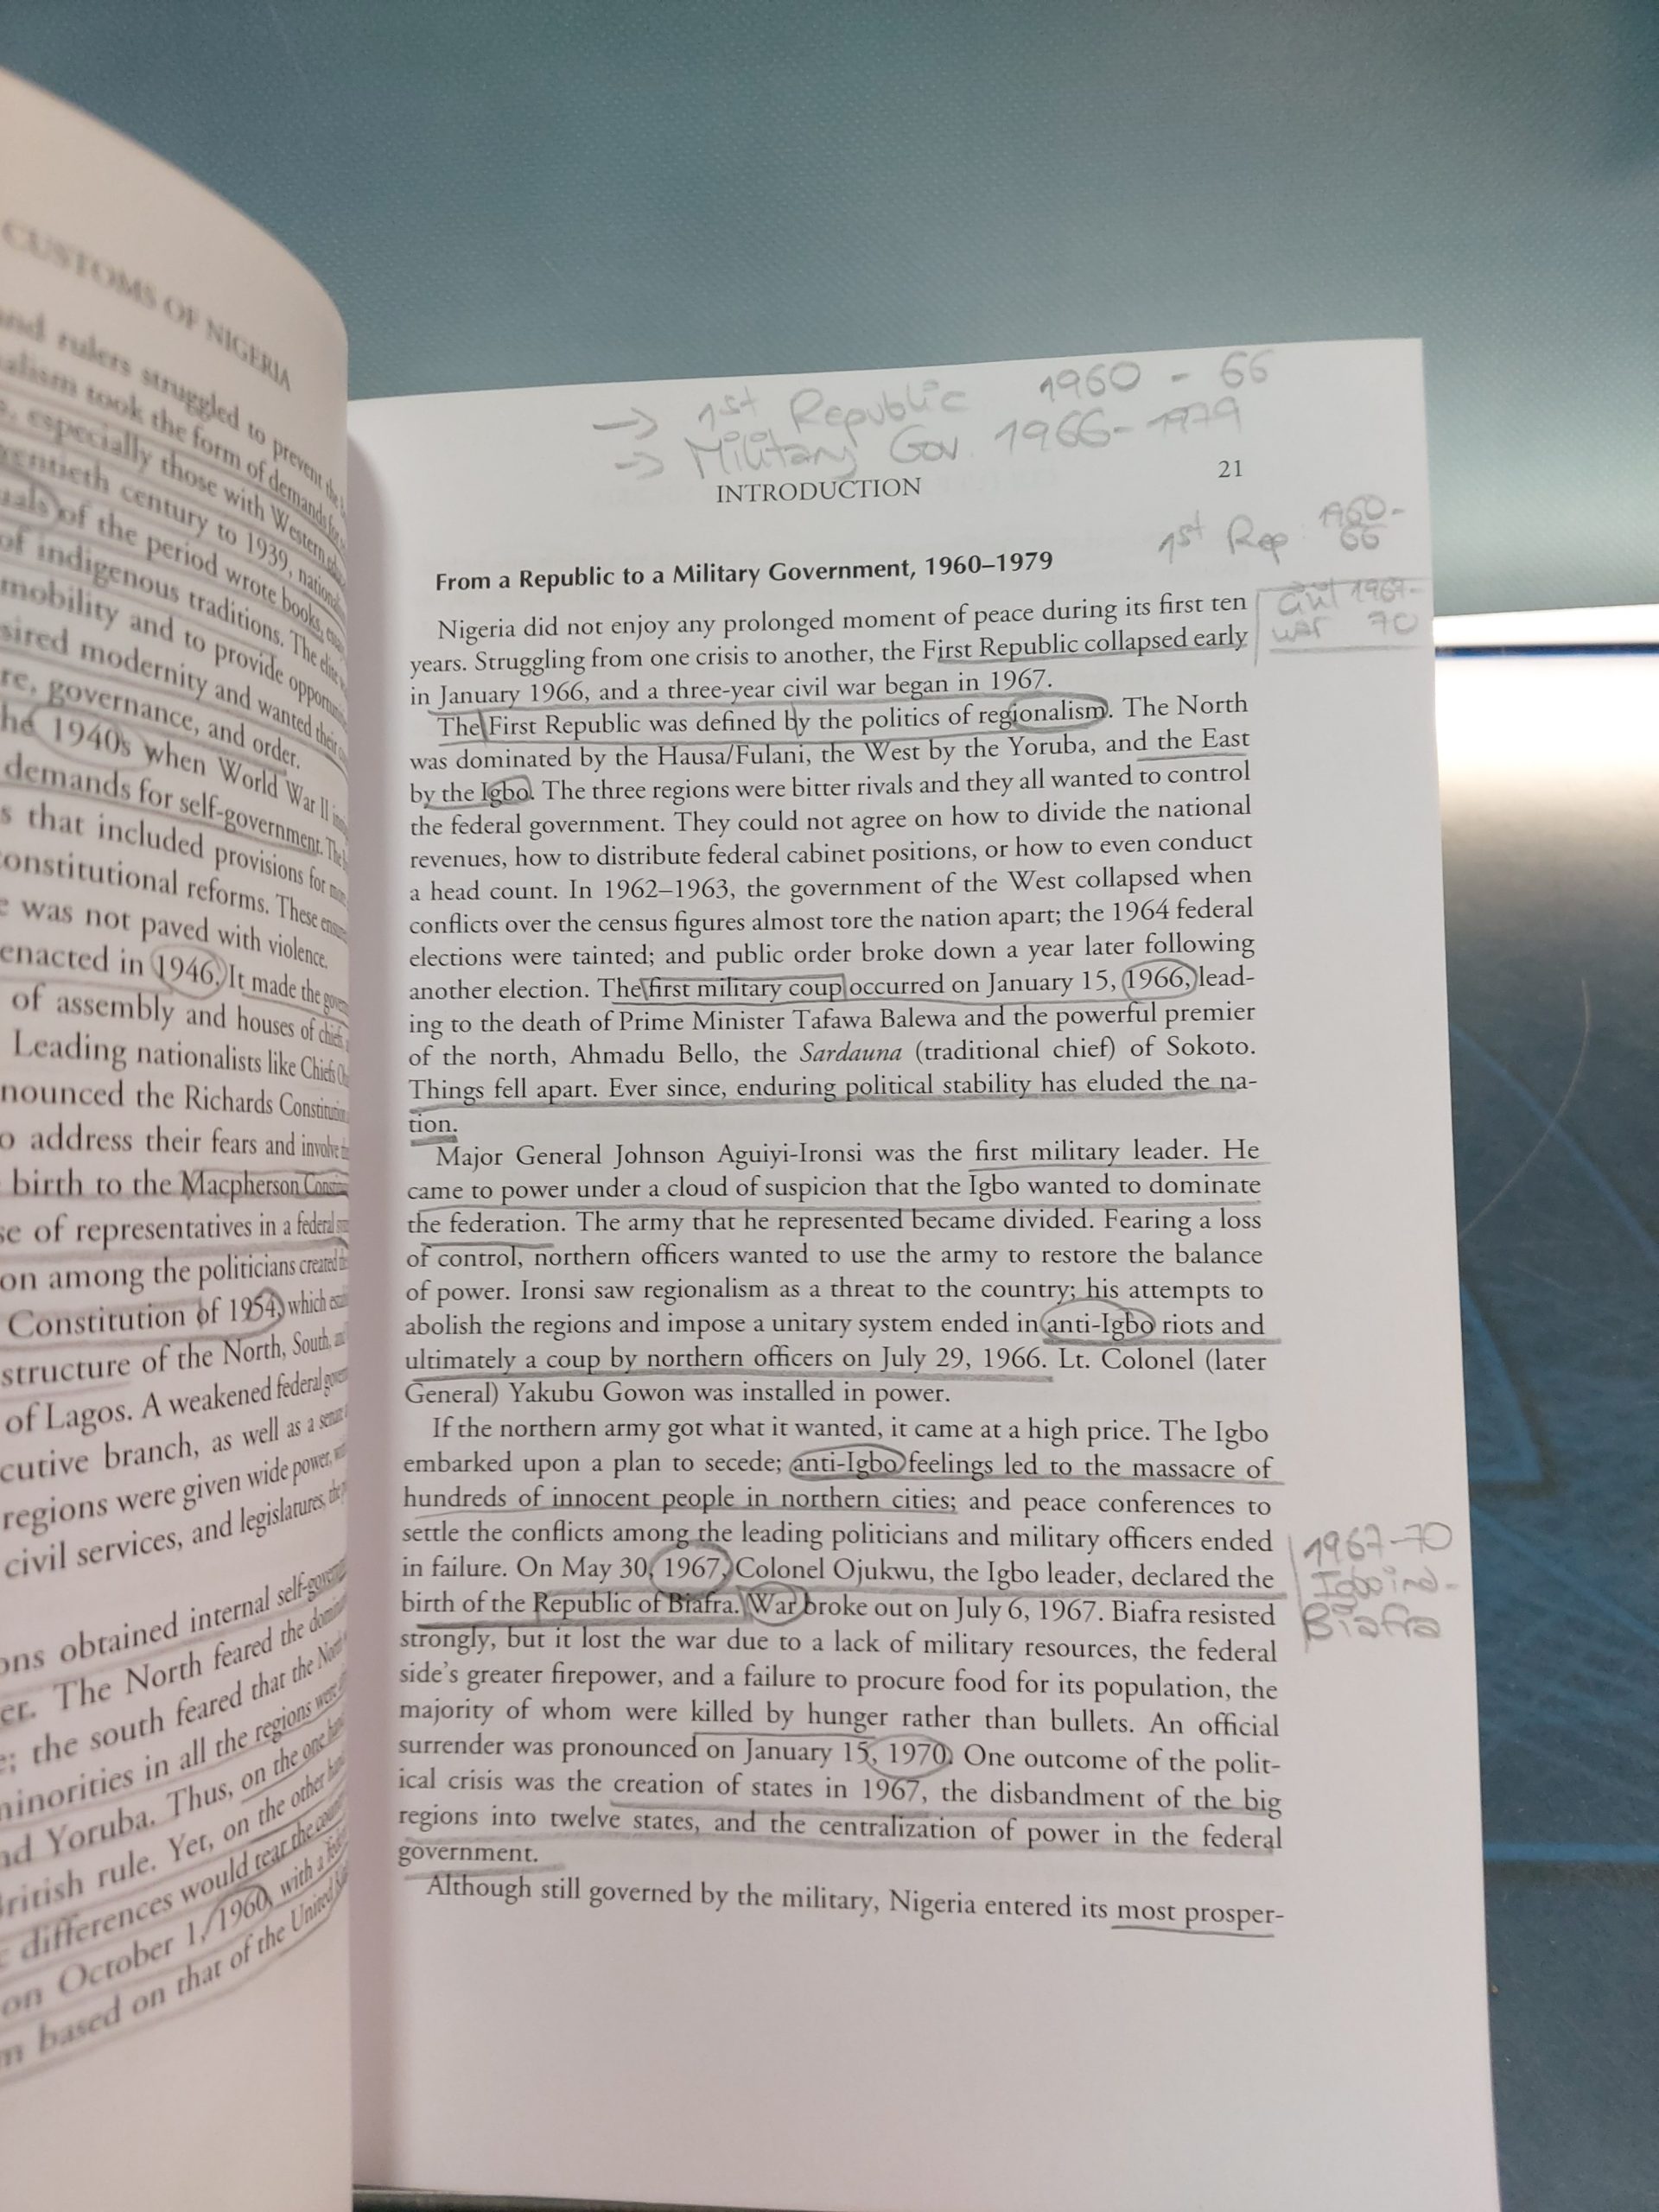 CUSTOMS OF NIGERIA
and rulers struggled to prevent the
alism took the form of demands for
especially those with Western
entieth century to 1939,
uals of the period wrote books,
of indigenous traditions. The elite
mobility and to provide
sired modernity and wanted their
re, governance, and order.
he 1940s when World War II
demands for self-government. The
s that included provisions for
onstitutional reforms. These
e was not paved with violence.
enacted in 1946. It made the
of assembly and houses of chiefs,
Leading nationalists like Chiefs
nounced the Richards
o address their fears and involve
birth to the Macpherson
se of representatives in a federal
on among the politicians created
Constitution of 1954, which
structure of the North, South,
of Lagos. A weakened federal
cutive branch, as well as a
regions were given wide power,
civil services, and legislatures,
ons obtained internal
er. The North feared the
e; the south feared that the
minorities in all the regions were
nd Yoruba. Thus, on the one
British rule. Yet, on the other
differences would tear the
on October 1, 1960, with a
m based on that of the United
→ 1st Republic 1960 - 66
→ Military Gov. 1966-1979
INTRODUCTION 21
1st Rep 1960-
66
From a Republic to a Military Government, 1960–1979
Civil 1967-
war 70
Nigeria did not enjoy any prolonged moment of peace during its first ten
years. Struggling from one crisis to another, the First Republic collapsed early
in January 1966, and a three-year civil war began in 1967.
The First Republic was defined by the politics of regionalism. The North
was dominated by the Hausa/Fulani, the West by the Yoruba, and the East
by the Igbo. The three regions were bitter rivals and they all wanted to control
the federal government. They could not agree on how to divide the national
revenues, how to distribute federal cabinet positions, or how to even conduct
a head count. In 1962–1963, the government of the West collapsed when
conflicts over the census figures almost tore the nation apart; the 1964 federal
elections were tainted; and public order broke down a year later following
another election. The first military coup occurred on January 15, 1966, lead-
ing to the death of Prime Minister Tafawa Balewa and the powerful premier
of the north, Ahmadu Bello, the Sardauna (traditional chief) of Sokoto.
Things fell apart. Ever since, enduring political stability has eluded the na-
tion.
Major General Johnson Aguiyi-Ironsi was the first military leader. He
came to power under a cloud of suspicion that the Igbo wanted to dominate
the federation. The army that he represented became divided. Fearing a loss
of control, northern officers wanted to use the army to restore the balance
of power. Ironsi saw regionalism as a threat to the country; his attempts to
abolish the regions and impose a unitary system ended in anti-Igbo riots and
ultimately a coup by northern officers on July 29, 1966. Lt. Colonel (later
General) Yakubu Gowon was installed in power.
If the northern army got what it wanted, it came at a high price. The Igbo
embarked upon a plan to secede; anti-Igbo feelings led to the massacre of
hundreds of innocent people in northern cities; and peace conferences to
settle the conflicts among the leading politicians and military officers ended
in failure. On May 30, 1967, Colonel Ojukwu, the Igbo leader, declared the
birth of the Republic of Biafra. War broke out on July 6, 1967. Biafra resisted
strongly, but it lost the war due to a lack of military resources, the federal
side's greater firepower, and a failure to procure food for its population, the
majority of whom were killed by hunger rather than bullets. An official
surrender was pronounced on January 15, 1970. One outcome of the polit-
ical crisis was the creation of states in 1967, the disbandment of the big
regions into twelve states, and the centralization of power in the federal
government.
Although still governed by the military, Nigeria entered its most prosper-
1967-70
Igbo ind.-
Biafra